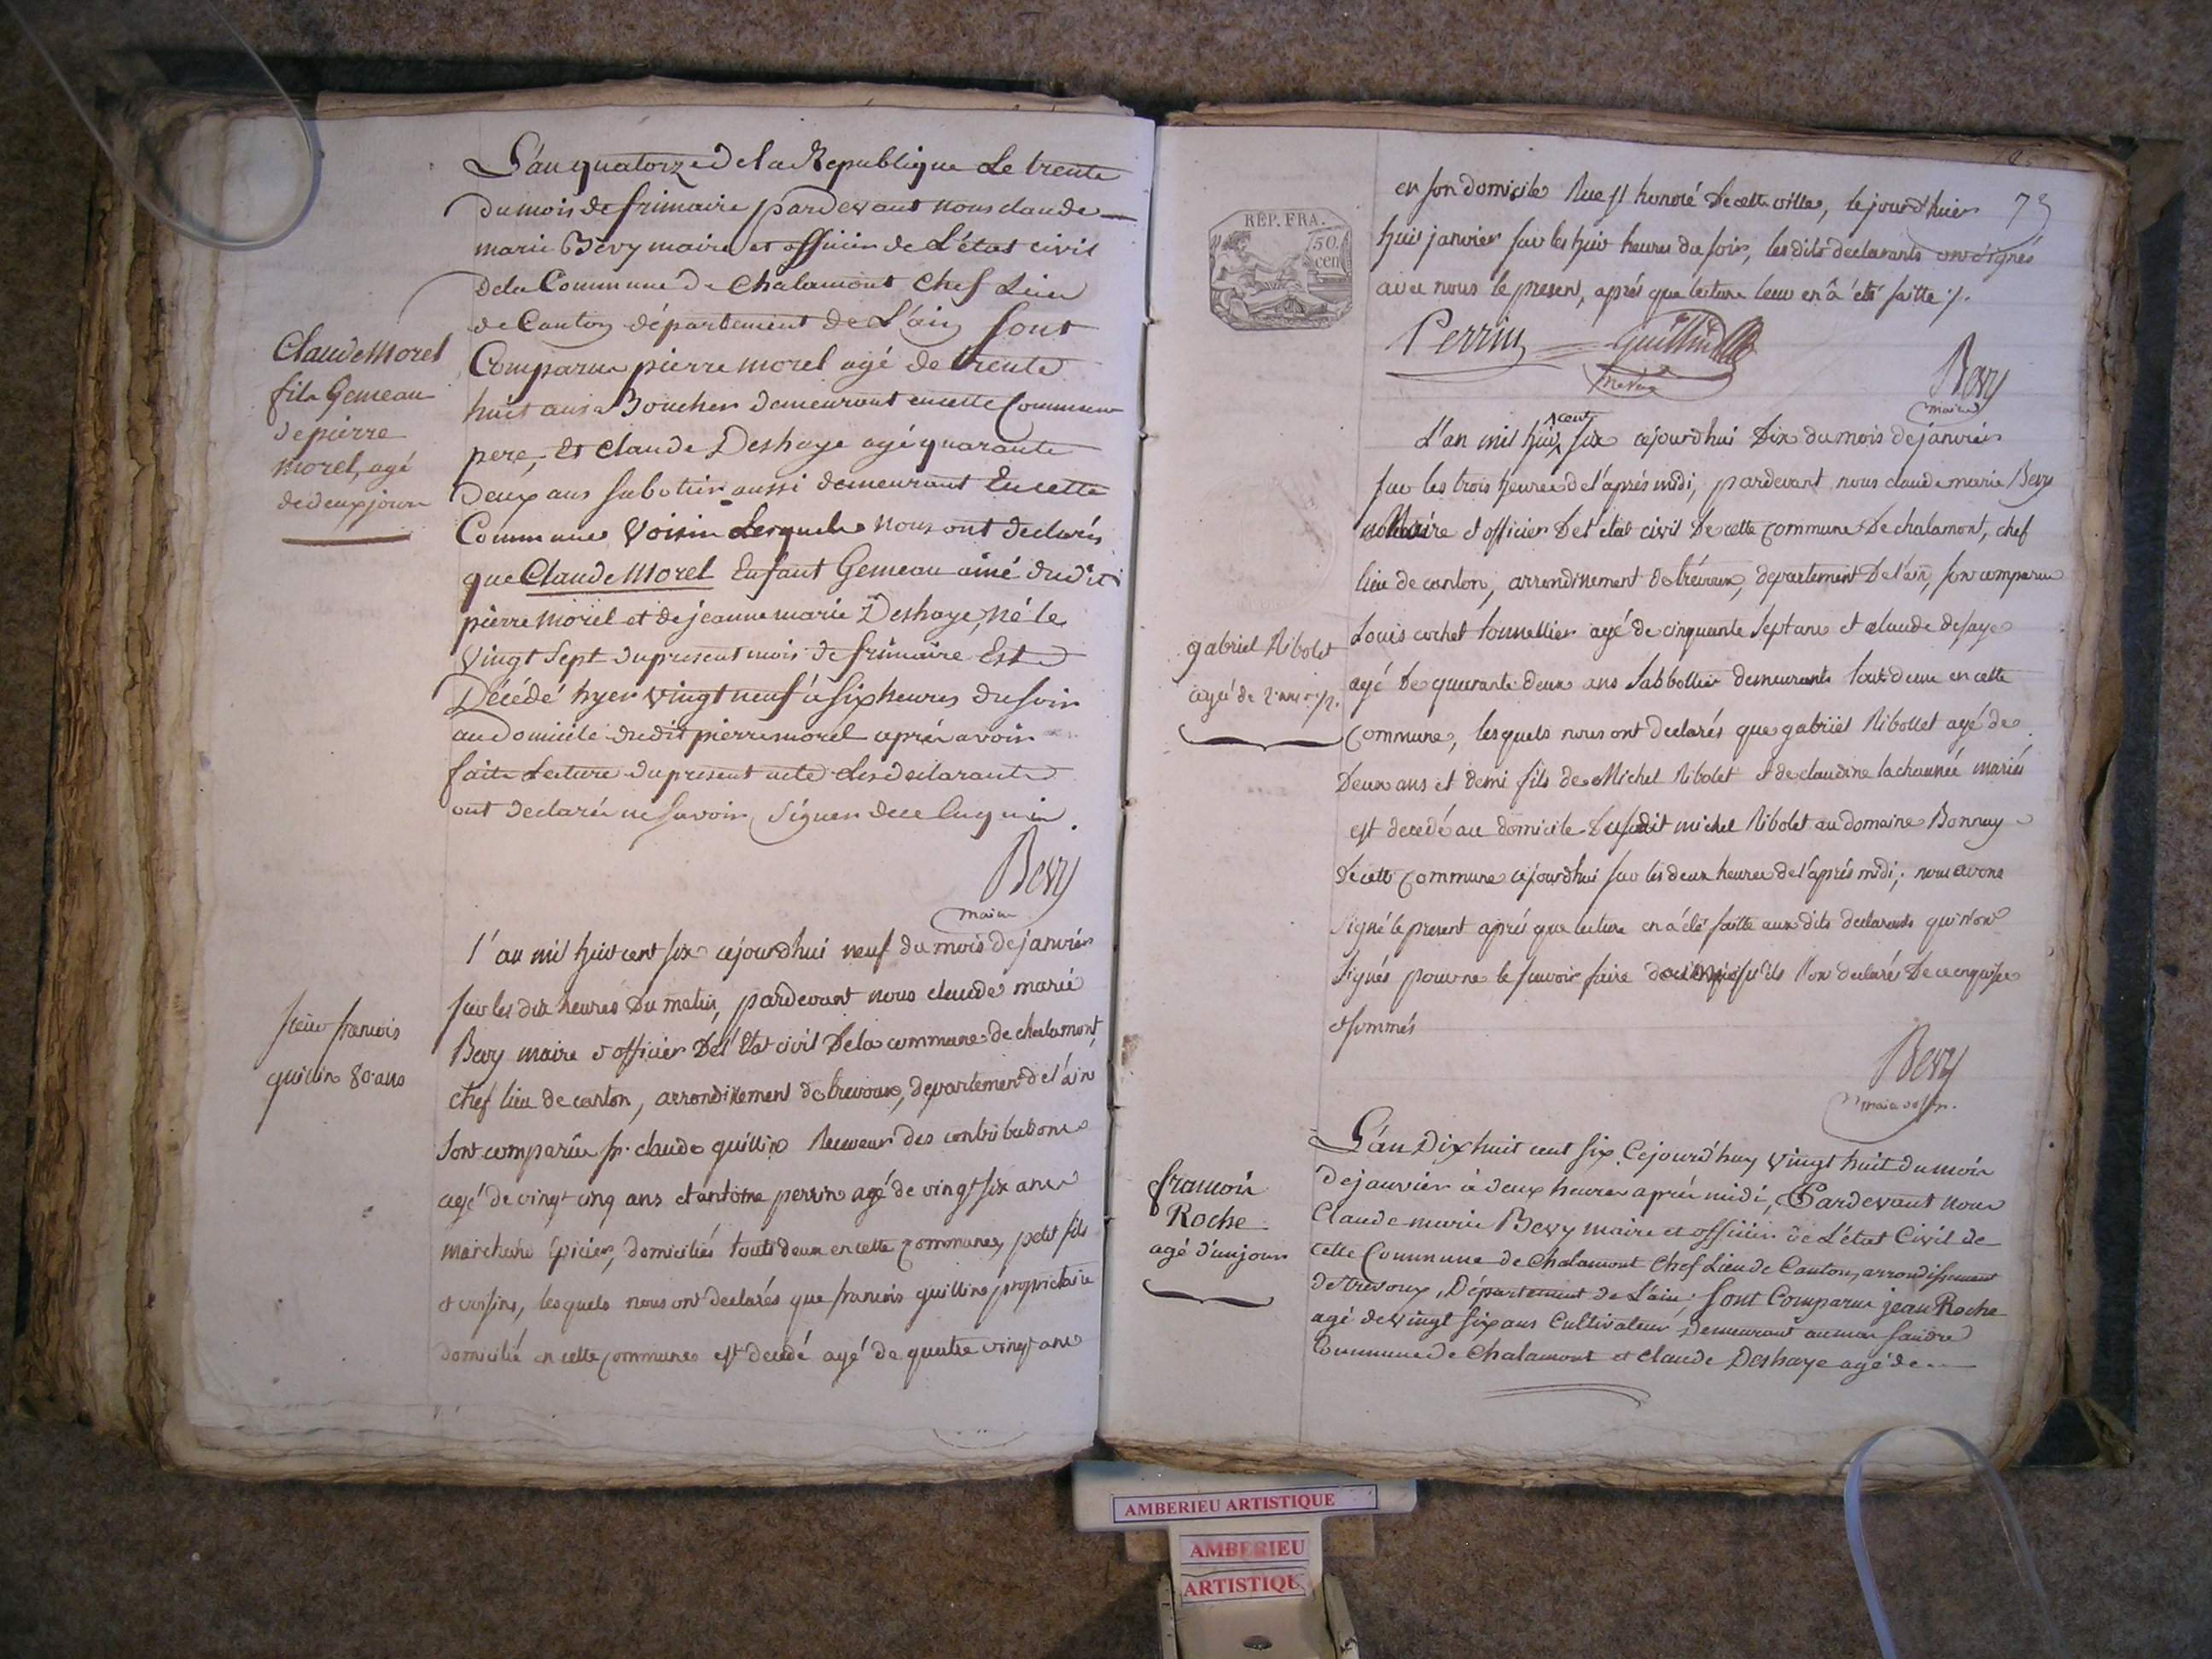 L'an quatorze de la Republique Le trente
du mois de frimaire pardevant nous claude
marie Bevy maire et officier de L'état civil
dela Commune De Chalamont Chef Lieu
de Canton département de L'ain Sont
Claude Morel
fils Gemeau
de pierre
morel, agé
de deux jours
Comparus pierre morel agé de trente
huit ans Boucher demeurant en cette Commune
pere, et Claude Deshaye agé quarante
deux ans sabotier aussi demeurant En cette
Commune Voisin Lesquels Nous ont declarés
que Claude Morel Enfant Gemeau ainé dudit
pierre Morel et de jeanne marie Deshaye, né le
Vingt Sept du present mois de frimaire Est
Décédé hyer vingt neuf à six heures du soir
au Domicile dudit pierre morel après avoir
faite Lecture du present acte Les declarants
ont declarés ne savoir signer de ce Enquis.
Bevy
maire
l'an mil huit cent six cejourdhui neuf du mois de janvier
sur les dix heures Du matin, pardevant nous claude marie
Bevy maire & officier Del' Etat civil Dela commune de chalamont,
chef lieu de canton, arrondissement de trevoux, departement de l'ain
Sieur francois
guillin 80 ans
Sont comparûs sr. claude guillin Receveur des contributions
agé de vingt cinq ans et antoine perrin agé de vingt six ans
marchand Epicier, domiciliés touts deux en cette commune, petit fils
et voisins, lesquels nous ont declarés que francois guillin proprietaire
domicilié en cette commune est decedé agé de quatre vingt ans
73
REP. FRA.
50
cen
en son domicile Rue st honoré De cette ville, le jour d'hier
huit janvier sur les huit heures du soir, les dits declarants ont signés
avec nous le present, aprés que lecture leur en â été faitte ./.
Perrin Guillin
neveu
Bevy
maire
L'an mil huit cent six cejourdhui Dix du mois de janvier
sur les trois heures de l'aprés midi, pardevant nous claude marie Bevy
Maire & officier Del' etat civil De cette commune De chalamont, chef
lieu de canton, arrondissement de trévoux, departement De l'ain, sont comparus
gabriel Ribolet
agé de 2 ans 1/2.
Louis cochet tonnellier agé de cinquante sept ans et claude desaye
agé De quarante deux ans Sabbottier demeurants touts deux en cette
commune, lesquels nous ont declarés que gabriel Ribollet agé de
Deux ans et demi fils de Michel Ribolet & de claudine lachaunée mariés
est decedé au domicile Dusudit michel Ribolet au domaine Bonnay
De cette commune cejourdhui sur les deux heures de l'aprés midi; nous avons
signé le present aprés que lecture en a été faitte aux dits declarants qui n'ont
signés pour ne le savoir faire ainsi qu'ils l'ont declarés De ce enquis
& sommés
Bevy
maire
francois
Roche
agé d'un jour
L'an Dix huit cent six, Cejourd'huy vingt huit du mois
de janvier à deux heures après midi, Pardevant nous
Claude marie Bevy maire et officier de L'état Civil de
cette Commune de Chalamont Chef Lieu de Canton, arrondissement
de trevoux, Département de L'ain; sont Comparus jean Roche
agé de vingt six ans Cultivateur Demeurant au mas
Commune de Chalamont et Claude Deshaye agé de
AMBERIEU ARTISTIQUE
AMBERIEU
ARTISTIQU